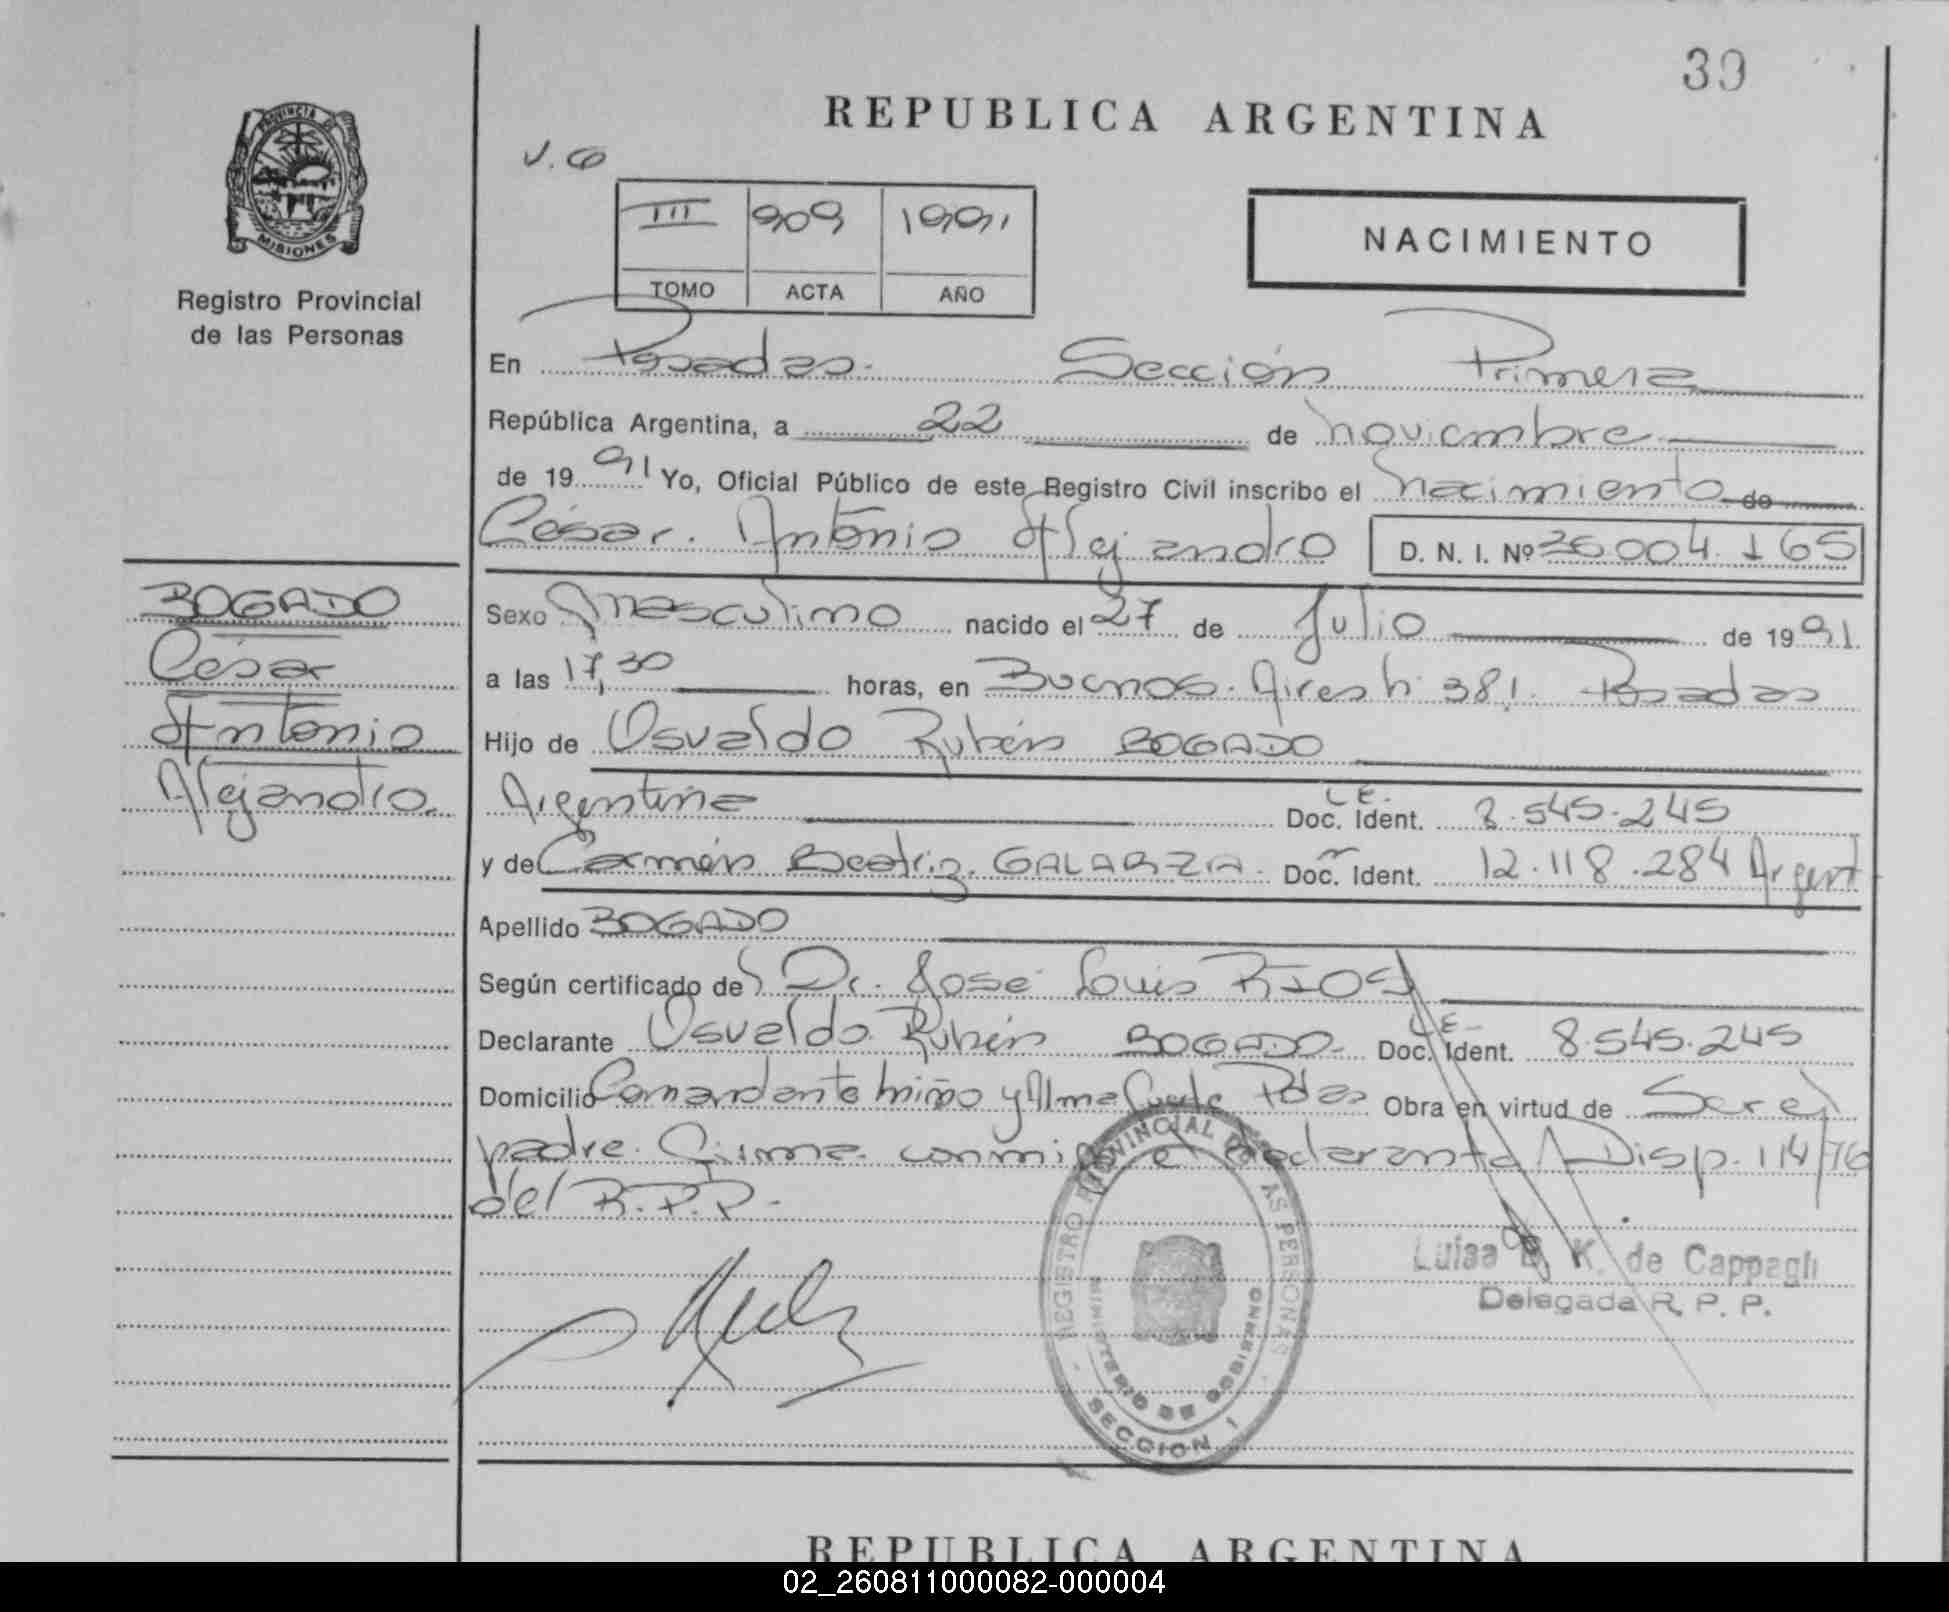 39
REPUBLICA ARGENTINA
PROVINCIA DE
MISIONES
Registro Provincial
de las Personas
III 909 1991
TOMO ACTA AÑO
NACIMIENTO
En Posadas. Sección Primera
República Argentina, a 22 de noviembre
de 1991 Yo, Oficial Público de este Registro Civil inscribo el nacimiento de
César. Antonio Alejandro D. N. I. Nº 36.004.165
BOGADO
César
Antonio
Alejandro.
Sexo masculino nacido el 27 de Julio de 1991.
a las 17,30 horas, en Buenos Aires n: 381. Posadas
Hijo de Osvaldo Rubén BOGADO
Argentina L.E. Doc. Ident. 8.545.245
y de Carmen Beatriz GALARZA. Doc. Ident. 12.118.284 Argent
Apellido BOGADO
Según certificado del Dr. José Luis RIOS
Declarante Osvaldo Rubén BOGADO. L.E. Doc. Ident. 8.545.245
Domicilio Comandante Miño y Almafuerte Pdas Obra en virtud de Ser el
padre. Firma conmigo el declarante Disp. 114/76
del R.P.P.-
REGISTRO PROVINCIAL DE LAS PERSONAS
MINISTERIO DE GOBIERNO
SECCION 1
Luisa K. de Cappagli
Delegada R. P. P.
REPUBLICA ARGENTINA
02_260811000082-000004